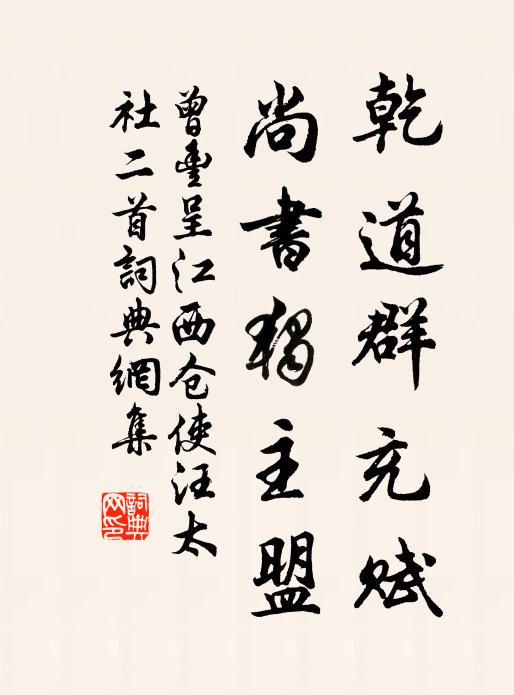 乾道群充赋
尚書獨主盟
曾豊呈江西仓使汪太
社二首詞典網集
詞典
网印